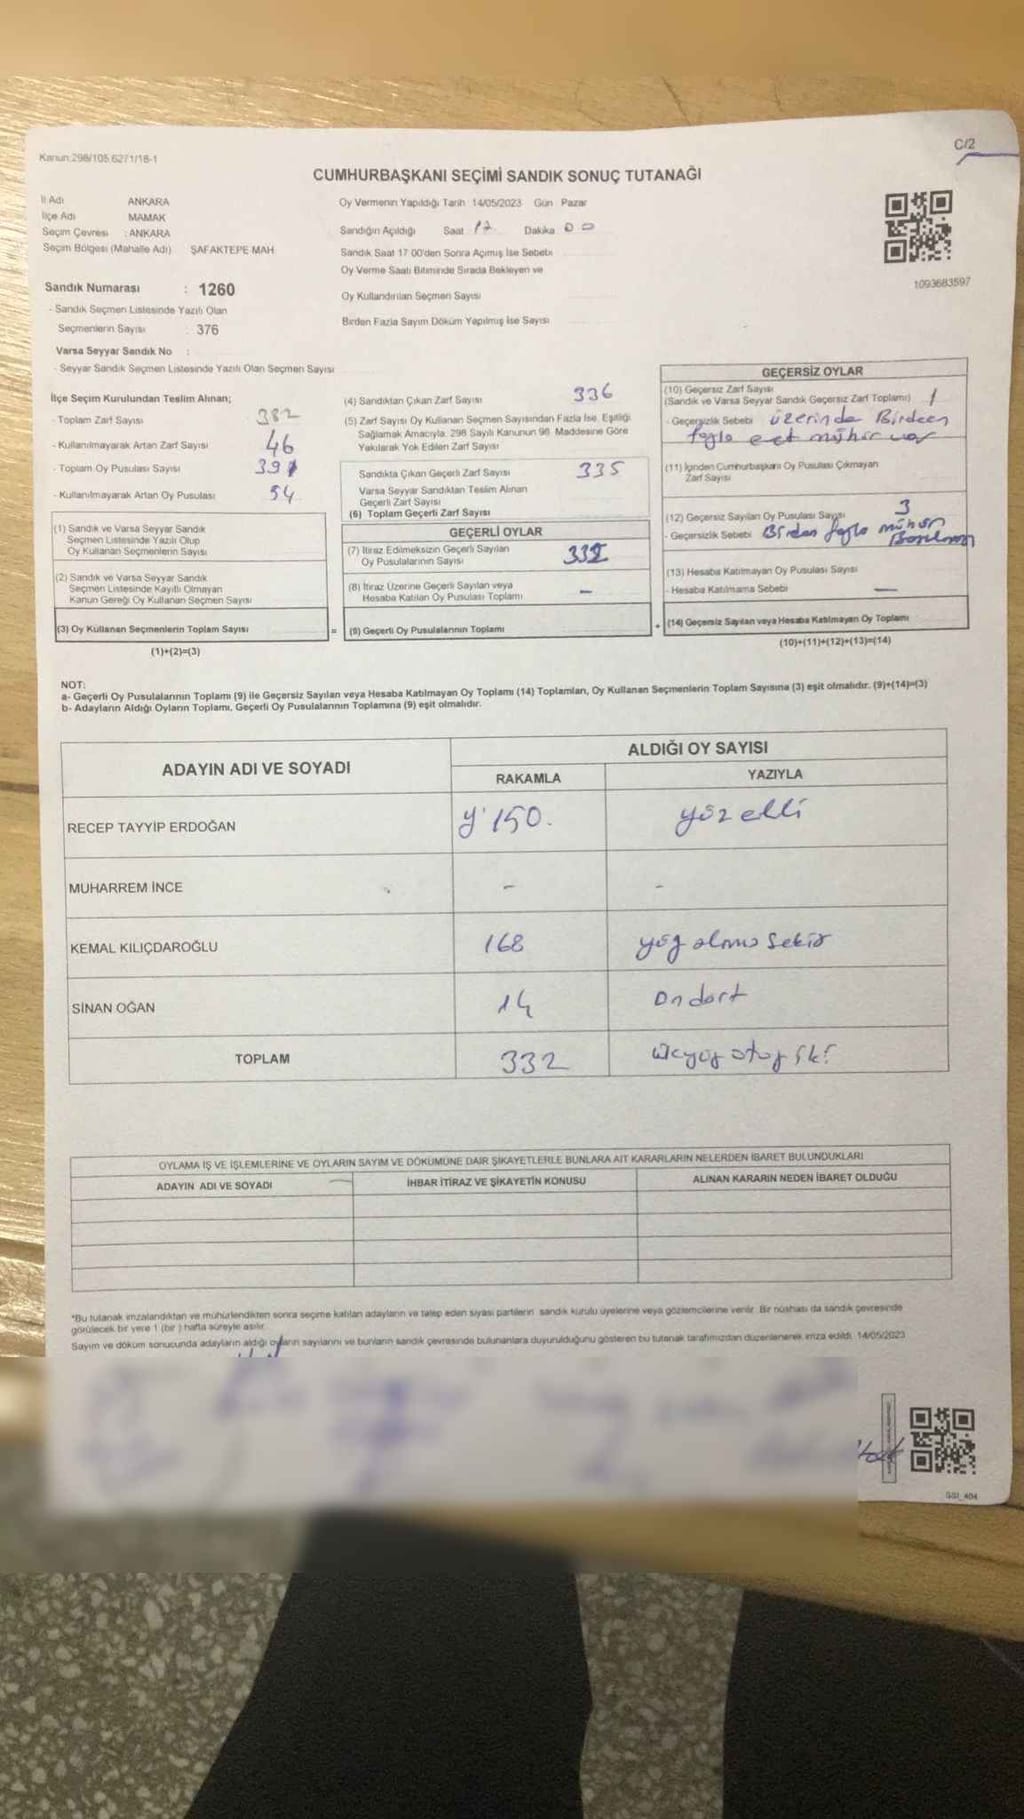 Kanun:298/105,627/1/18-1
C/2
CUMHURBAŞKANI SEÇİMİ SANDIK SONUÇ TUTANAĞI
İl Adı ANKARA
İlçe Adı MAMAK
Seçim Çevresi : ANKARA
Seçim Bölgesi (Mahalle Adı) ŞAFAKTEPE MAH
Oy Vermenin Yapıldığı Tarih 14/05/2023 Gün Pazar
Sandığın Açıldığı Saat 17 Dakika 00
Sandık Saat 17 00'den Sonra Açımış İse Sebebi
Oy Verme Saati Bitiminde Sırada Bekleyen ve
Oy Kullandırılan Seçmen Sayısı
Birden Fazla Sayım Döküm Yapılmış İse Sayısı
1093683597
Sandık Numarası : 1260
- Sandık Seçmen Listesinde Yazılı Olan
Seçmenlerin Sayısı : 376
Varsa Seyyar Sandık No :
- Seyyar Sandık Seçmen Listesinde Yazılı Olan Seçmen Sayısı
İlçe Seçim Kurulundan Teslim Alınan;
- Toplam Zarf Sayısı 382
- Kullanılmayarak Artan Zarf Sayısı 46
- Toplam Oy Pusulası Sayısı 391
- Kullanılmayarak Artan Oy Pusulası 54
(1) Sandık ve Varsa Seyyar Sandık
Seçmen Listesinde Yazılı Olup
Oy Kullanan Seçmenlerin Sayısı
(2) Sandık ve Varsa Seyyar Sandık
Seçmen Listesinde Kayıtlı Olmayan
Kanun Gereği Oy Kullanan Seçmen Sayısı
(3) Oy Kullanan Seçmenlerin Toplam Sayısı =
(1)+(2)=(3)
(4) Sandıktan Çıkan Zarf Sayısı 336
(5) Zarf Sayısı Oy Kullanan Seçmen Sayısından Fazla İse, Eşitliği
Sağlamak Amacıyla, 298 Sayılı Kanunun 98. Maddesine Göre
Yakılarak Yok Edilen Zarf Sayısı
Sandıkta Çıkan Geçerli Zarf Sayısı 335
Varsa Seyyar Sandıktan Teslim Alınan
Geçerli Zarf Sayısı
(6) Toplam Geçerli Zarf Sayısı
GEÇERLİ OYLAR
(7) İtiraz Edilmeksizin Geçerli Sayılan
Oy Pusulalarının Sayısı 332
(8) İtiraz Üzerine Geçerli Sayılan veya
Hesaba Katılan Oy Pusulası Toplamı -
(9) Geçerli Oy Pusulalarının Toplamı +
GEÇERSİZ OYLAR
(10) Geçersiz Zarf Sayısı
(Sandık ve Varsa Seyyar Sandık Geçersiz Zarf Toplamı) 1
- Geçersizlik Sebebi üzerinde Birden
fazla evet mühür var
(11) İçinden Cumhurbaşkanı Oy Pusulası Çıkmayan
Zarf Sayısı
(12) Geçersiz Sayılan Oy Pusulası Sayısı 3
- Geçersizlik Sebebi Birden fazla mühür
(13) Hesaba Katılmayan Oy Pusulası Sayısı
- Hesaba Katılmama Sebebi —
(14) Geçersiz Sayılan veya Hesaba Katılmayan Oy Toplamı
(10)+(11)+(12)+(13)=(14)
NOT:
a- Geçerli Oy Pusulalarının Toplamı (9) ile Geçersiz Sayılan veya Hesaba Katılmayan Oy Toplamı (14) Toplamları, Oy Kullanan Seçmenlerin Toplam Sayısına (3) eşit olmalıdır. (9)+(14)=(3)
b- Adayların Aldığı Oyların Toplamı, Geçerli Oy Pusulalarının Toplamına (9) eşit olmalıdır.
ADAYIN ADI VE SOYADI
ALDIĞI OY SAYISI
RAKAMLA YAZIYLA
RECEP TAYYİP ERDOĞAN y'150. yüz elli
MUHARREM İNCE - -
KEMAL KILIÇDAROĞLU 168 yüz altmış sekiz
SİNAN OĞAN 14 on dört
TOPLAM 332 üçyüz otuz iki
OYLAMA İŞ VE İŞLEMLERİNE VE OYLARIN SAYIM VE DÖKÜMÜNE DAİR ŞİKAYETLERLE BUNLARA AİT KARARLARIN NELERDEN İBARET BULUNDUKLARI
ADAYIN ADI VE SOYADI İHBAR İTİRAZ VE ŞİKAYETİN KONUSU ALINAN KARARIN NEDEN İBARET OLDUĞU
*Bu tutanak imzalandıktan ve mühürlendikten sonra seçime katılan adayların ve talep eden siyasi partilerin sandık kurulu üyelerine veya gözlemcilerine verilir. Bir nüshası da sandık çevresinde
görülecek bir yere 1 (bir) hafta süreyle asılır.
Sayım ve döküm sonucunda adayların aldığı oyların sayılarını ve bunların sandık çevresinde bulunanlara duyurulduğunu gösteren bu tutanak tarafımızdan düzenlenerek imza edildi. 14/05/2023